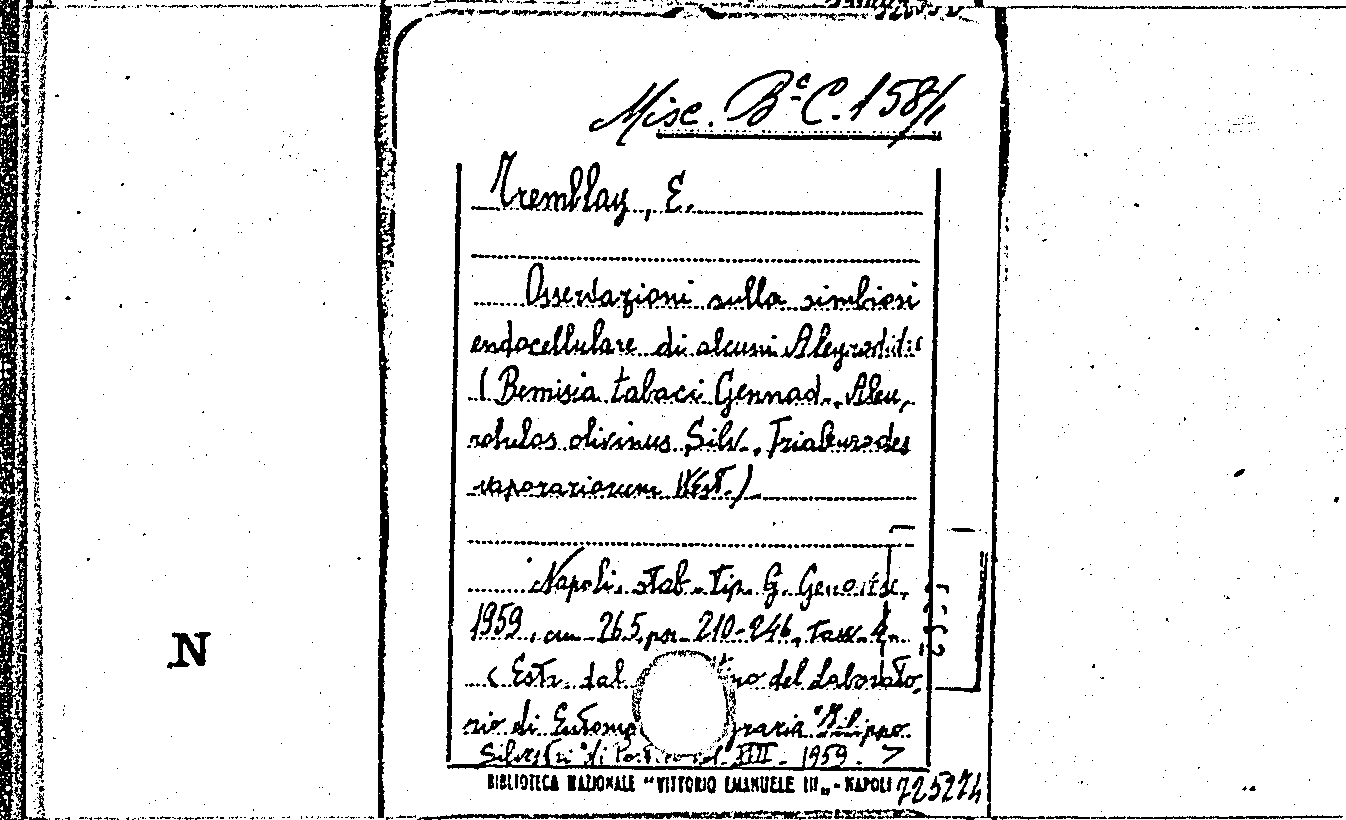 Misc. Bᵃ C. 158/1
Tremblay, E.
Osservazioni sulla simbiosi
endocellulare di alcuni Aleyrodidi
(Bemisia tabaci Gennad., Aleu,
rolulos olivinus Silv., Trialeurodes
vaporariorum West.)
Napoli, stab. tip. G. Genovese,
1959, cm 26.5, pp. 210-246, tavv. 4
< Estr. dal no del Laborato,
rio di Entomo graria "Filippo
Silvestri" di Portici vol. XVII - 1959. >
BIBLIOTECA NAZIONALE "VITTORIO EMANUELE III" - NAPOLI 725274
N